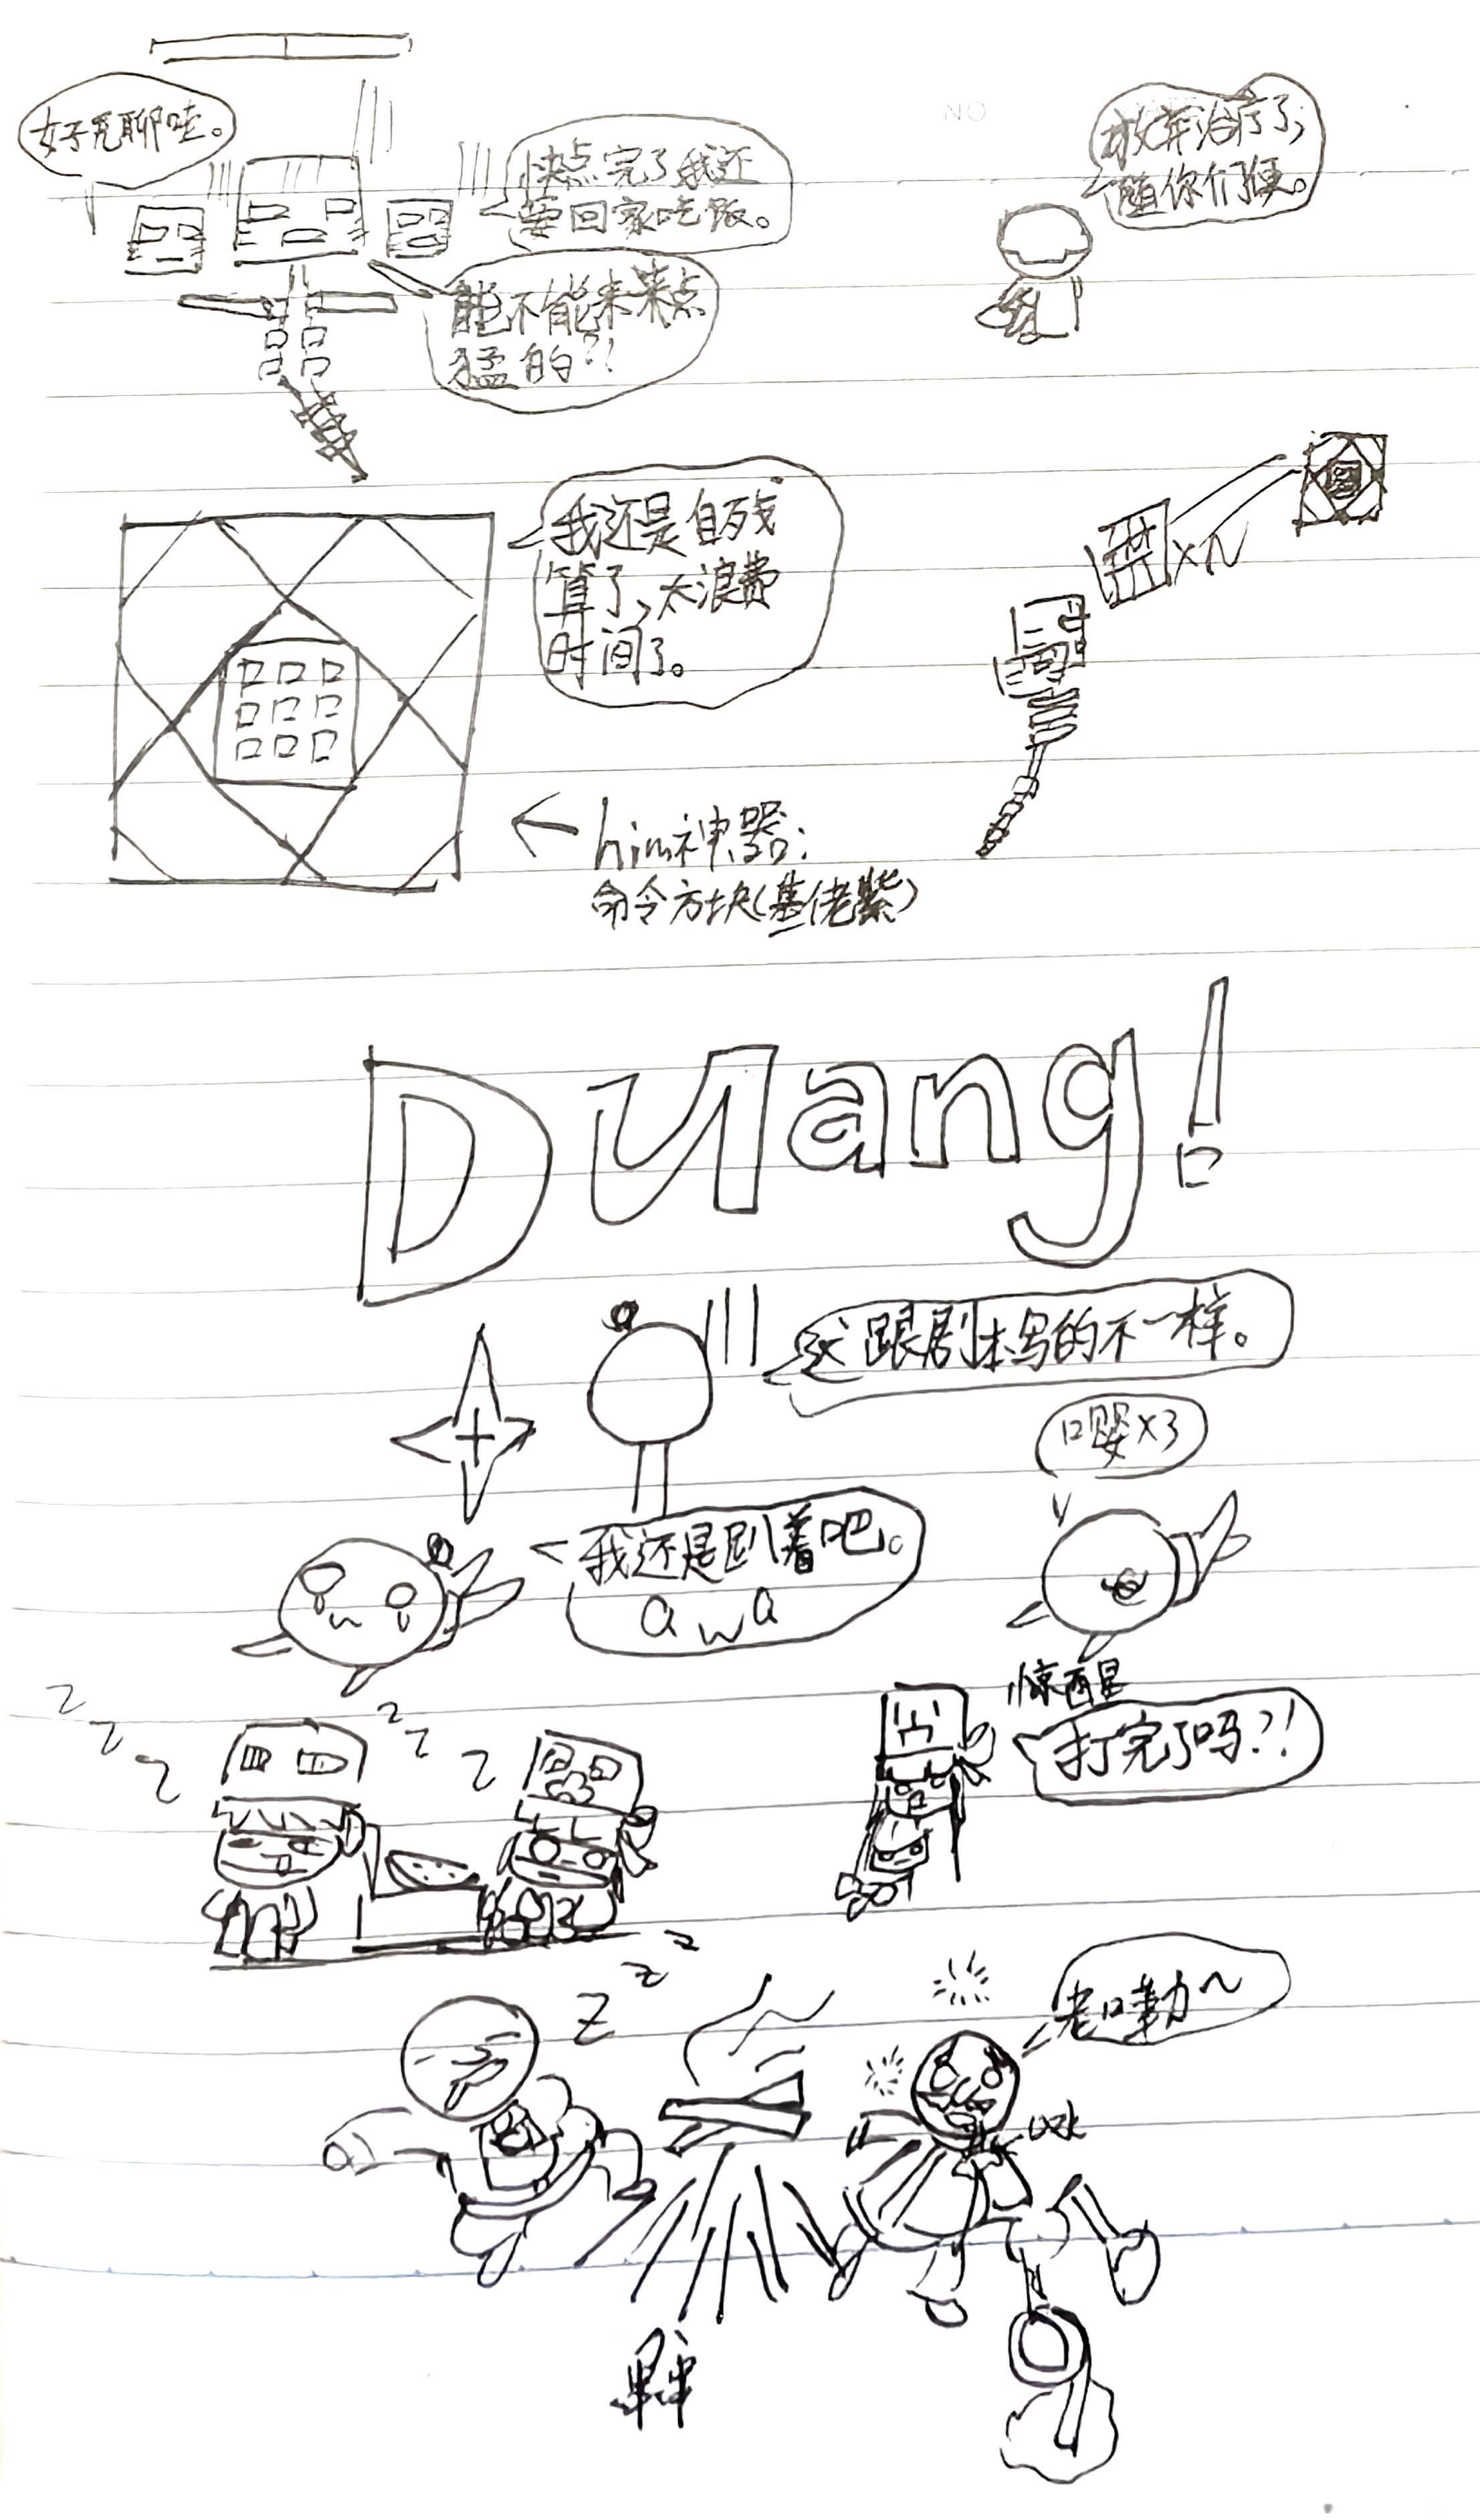 好无聊哇。
快点完了我还
要回家吃饭。
能不能来点
猛的?!
放弃治疗了,
随你们便。
我还是自残
算了,太浪费
时间了。
×N
←him神器:
命令方块(基佬紫)
Duang!
这跟剧本写的不一样。
嘤×3
我还是趴着吧。
QwQ
z z z
z z z
惊醒
打完了吗?!
z z z
老嘞~